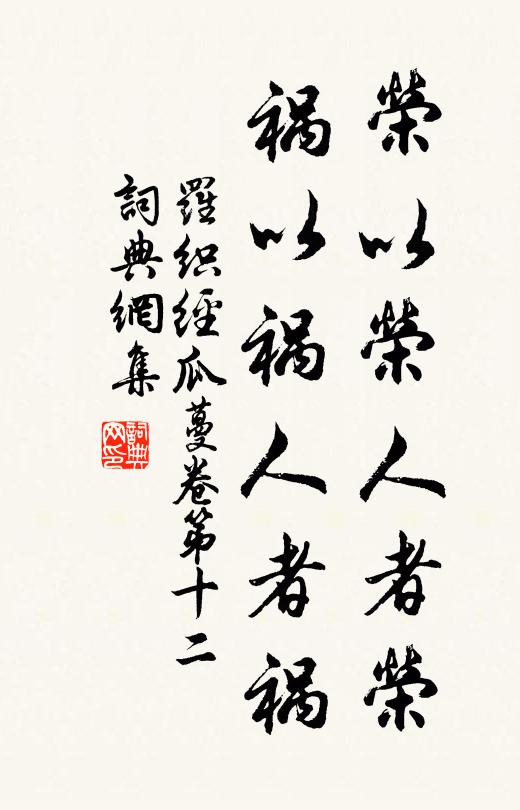 榮以榮人者榮
祸以祸人者祸
羅织經瓜蔓卷第十二
詞典網集
詞典
网印